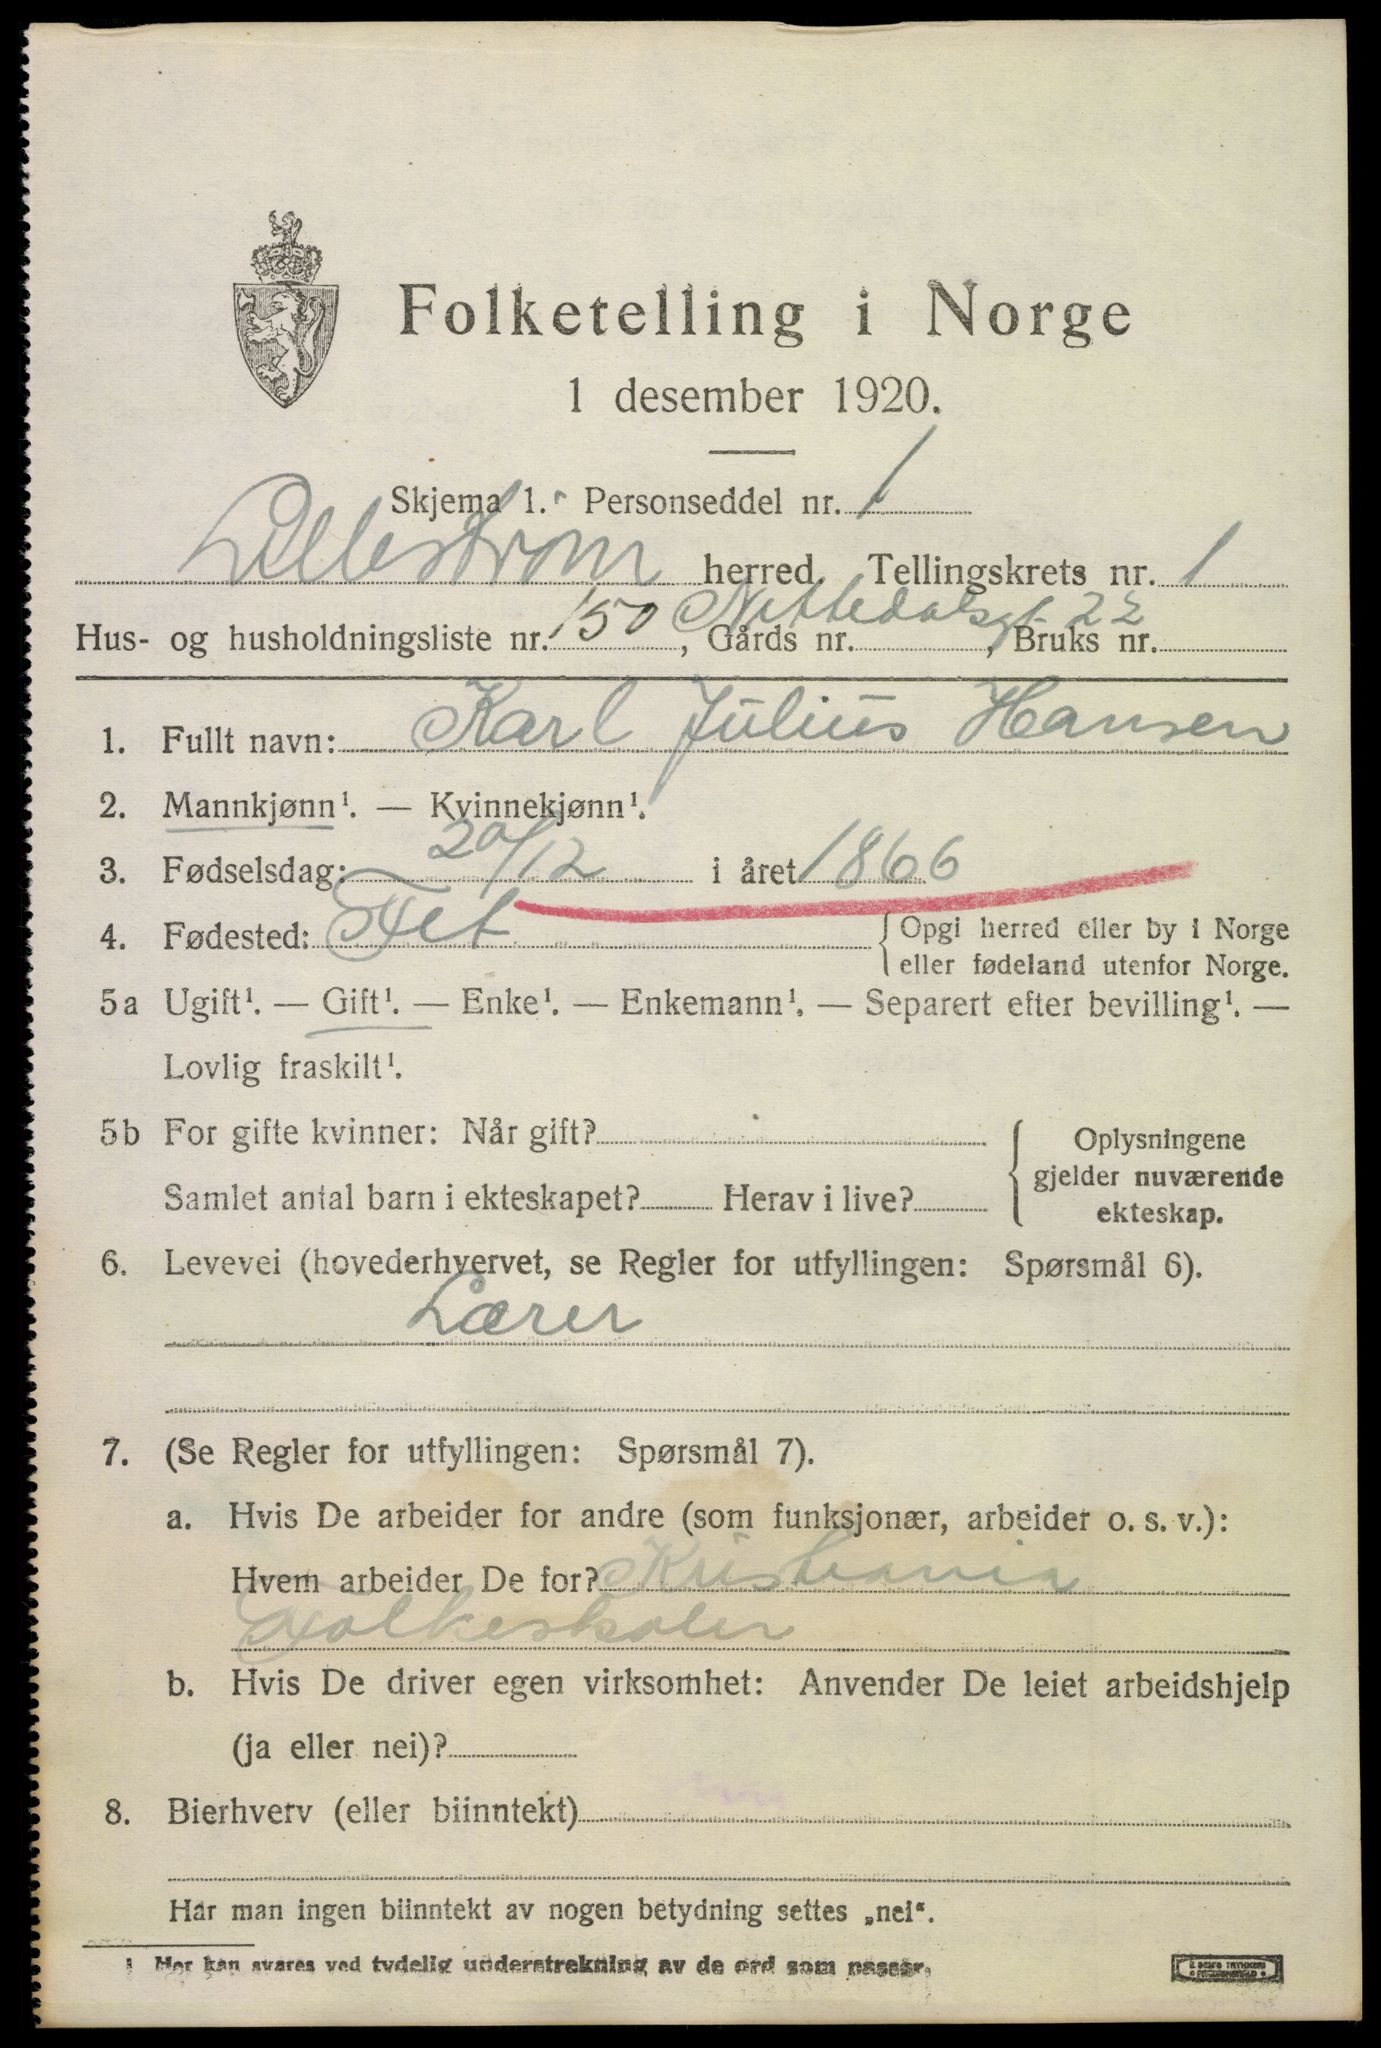 Folketelling i Norge
1 desember 1920.
Skjema 1. Personseddel nr. 1
Lillestrøm herred. Tellingskrets nr. 1
Hus- og husholdningsliste nr. 150, Gårds nr. , Bruks nr.
Nittedalsgt. 22
1. Fullt navn: Karl Julius Hansen
2. Mannkjønn¹. — Kvinnekjønn¹.
3. Fødselsdag: 20/12 i året 1866
4. Fødested: Fet { Opgi herred eller by i Norge
eller fødeland utenfor Norge.
5a Ugift¹. — Gift¹. — Enke¹. — Enkemann¹. — Separert efter bevilling¹. —
Lovlig fraskilt¹.
5b For gifte kvinner: Når gift? { Oplysningene
gjelder nuværende
Samlet antal barn i ekteskapet? Herav i live?
ekteskap.
6. Levevei (hovederhvervet, se Regler for utfyllingen: Spørsmål 6).
Lærer
7. (Se Regler for utfyllingen: Spørsmål 7).
a. Hvis De arbeider for andre (som funksjonær, arbeider o. s. v.):
Hvem arbeider De for? Kristiania
Folkeskoler
b. Hvis De driver egen virksomhet: Anvender De leiet arbeidshjelp
(ja eller nei)?
8. Bierhverv (eller biinntekt)
Har man ingen biinntekt av nogen betydning settes „nei“.
1 Her kan svares ved tydelig understrekning av de ord som passer.